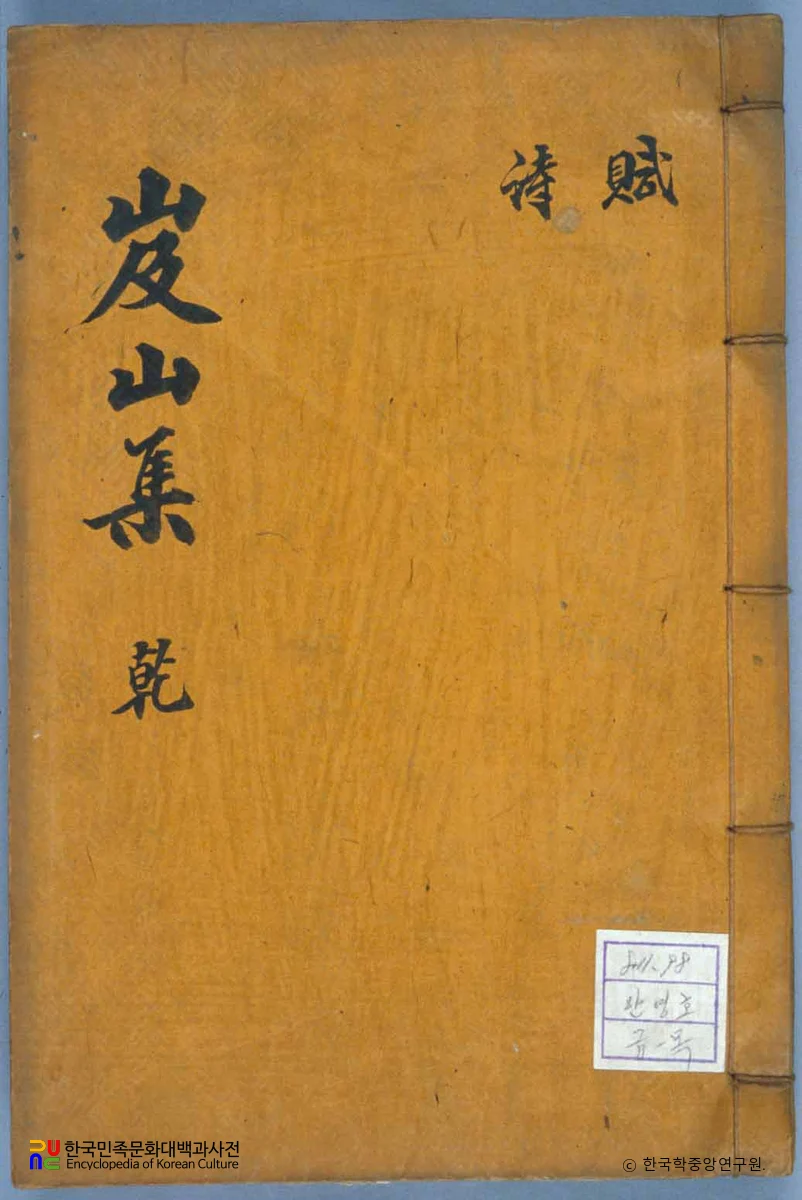 賦
詩
岌山集 乾
811.98
한국민족문화대백과사전
Encyclopedia of Korean Culture
© 한국학중앙연구원.